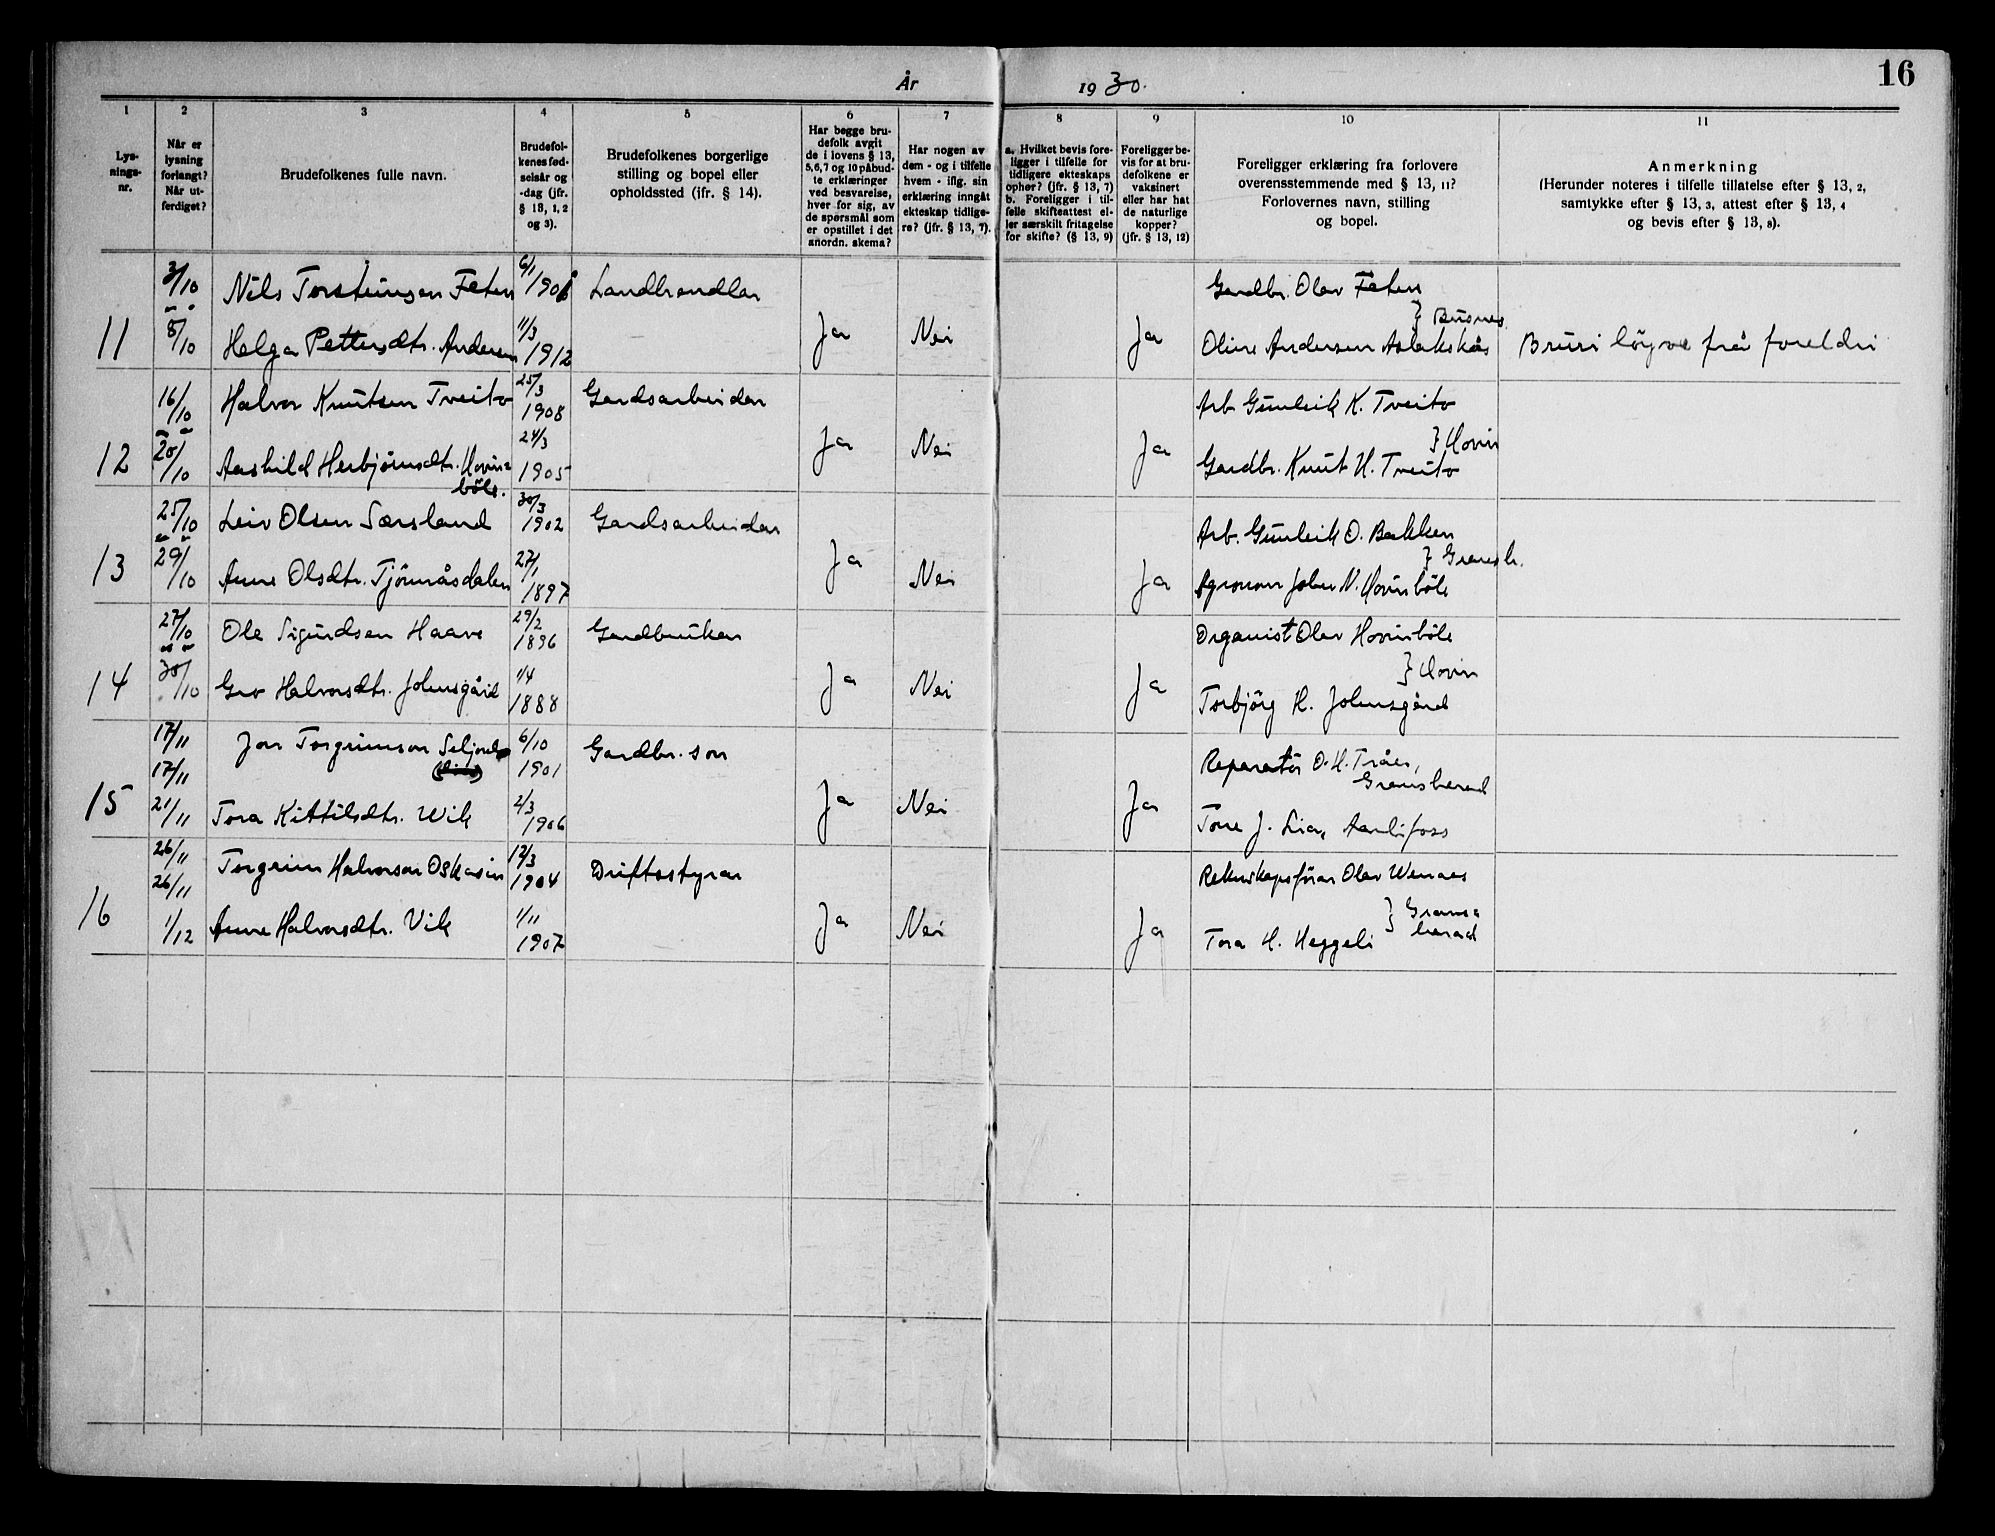 16
År 1930.
1 2 3 4 5 6 7 8 9 10 11
Lys-
nings-
nr.
Når er
lysning
forlangt?
Når ut-
ferdiget?
Brudefolkenes fulle navn.
Brudefol-
kenes fød-
selsår og
-dag (jfr.
§ 13, 1, 2
og 3).
Brudefolkenes borgerlige
stilling og bopel eller
opholdssted (ifr. § 14).
Har begge bru-
defolk avgit
de i lovens § 13,
5,6,7 og 10 påbud-
te erklæringer
ved besvarelse,
hver for sig, av
de spørsmål som
er opstillet i det
anordn. skema?
Har nogen av
dem - og i tilfelle
hvem - iflg. sin
erklæring inngåt
ekteskap tidlige-
re? (jfr. § 13, 7).
a. Hvilket bevis fore-
ligger i tilfelle for
tidligere ekteskaps
ophør? (jfr. § 13, 7)
b. Foreligger i til-
felle skifteattest el-
ler særskilt fritagelse
for skifte? (§ 13, 9)
Foreligger be-
vis for at bru-
defolkene er
vaksinert
eller har hat
de naturlige
kopper?
(jfr. § 13, 12)
Foreligger erklæring fra forlovere
overensstemmende med § 13, 11?
Forlovernes navn, stilling
og bopel.
Anmerkning
(Herunder noteres i tilfelle tillatelse efter § 13, 2,
samtykke efter § 13, 3, attest efter § 13, 4
og bevis efter § 13, 8).
3/10 Nils Torsteinsen Faten 6/1 1906 Landhandlar Gardbr. Olav Faten
} Busnes
11 8/10 Helga Pettersdtr. Andersen 11/3 1912 Ja Nei Ja Oline Andersen Aslakskås Bruri løyve frå foreldri
16/10 Halvor Knutsen Tveito 25/3 1908 Gardsarbeidar Arb. Gunleik K. Tveito
} Hovin
12 20/10 Aashild Herbjørnsdtr. Hovin= 24/3 1905 Ja Nei Ja Gardbr. Knut H. Tveito
böle.
25/10 Leiv Olsen Særsland 30/3 1902 Gardsarbeidar Arb. Gunleik O. Bakken
} Gransh.
13 29/10 Anne Olsdtr. Tjönnåsdalen 27/1 1897 Ja Nei Ja Agronom John N. Hovinböle
27/10 Ole Sigurdsen Haave 29/2 1896 Gardbrukar Organist Olav Hovinböle
} Hovin
14 30/10 Gro Halvorsdtr. Johnsgård 1/4 1888 Ja Nei Ja Torbjörg H. Johnsgård
17/11 Jon Torgrimson Seljord 6/10 1901 Gardbr. son Reparatör O. H. Tråen,
17/11 Gransherad
15 21/11 Tora Kittilsdtr. Wik 2/3 1906 Ja Nei Ja Tone J. Lia, Aarlifoss
26/11 Torgrim Halvorson Oskasin 12/3 1904 Driftsstyrar Rekneskapsförar Olav Wenaas
26/11 } Grans=
herad
16 1/12 Anne Halvorsdtr. Vik 1/11 1907 Ja Nei Ja Tora H. Heggeli